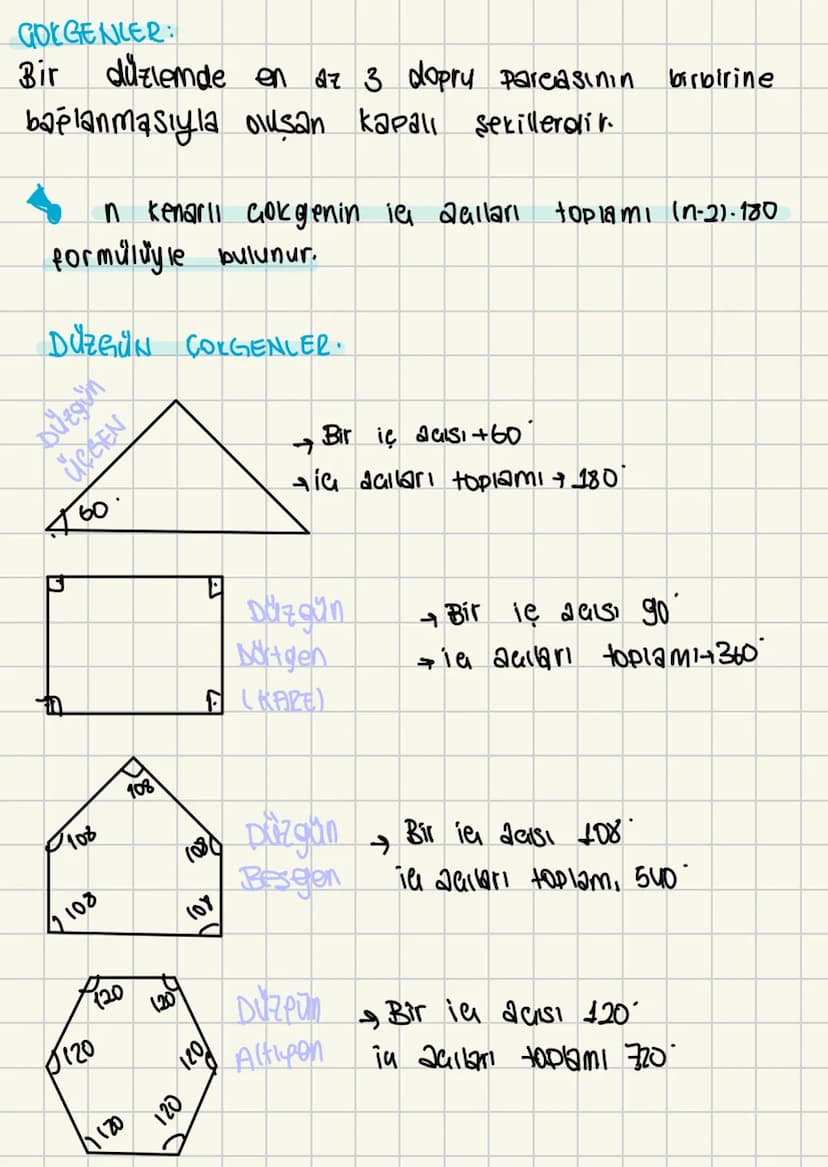 ÇOKGENLER:
Bir düzlemde en az 3 doğru parçasının birbirine
bağlanmasıyla oluşan kapalı şekillerdir.
n kenarlı çokgenin iç açıları toplamı (n-2).180
formülüyle bulunur.
DÜZGÜN ÇOKGENLER.
DÜzgün
ÜÇGEN
→ Bir iç açısı → 60°
→ iç açıları toplamı → 180°
60°
Düzgün
Dörtgen
(KARE)
→ Bir iç açısı 90°
→ iç açıları toplamı → 360°
108
108
108
108
108
Düzgün
Beşgen
→ Bir iç açısı 108°
iç açıları toplamı 540°
120
120
120
120
120
120
DÜzgün
Altıgen
→ Bir iç açısı 120°
iç açıları toplamı 720°